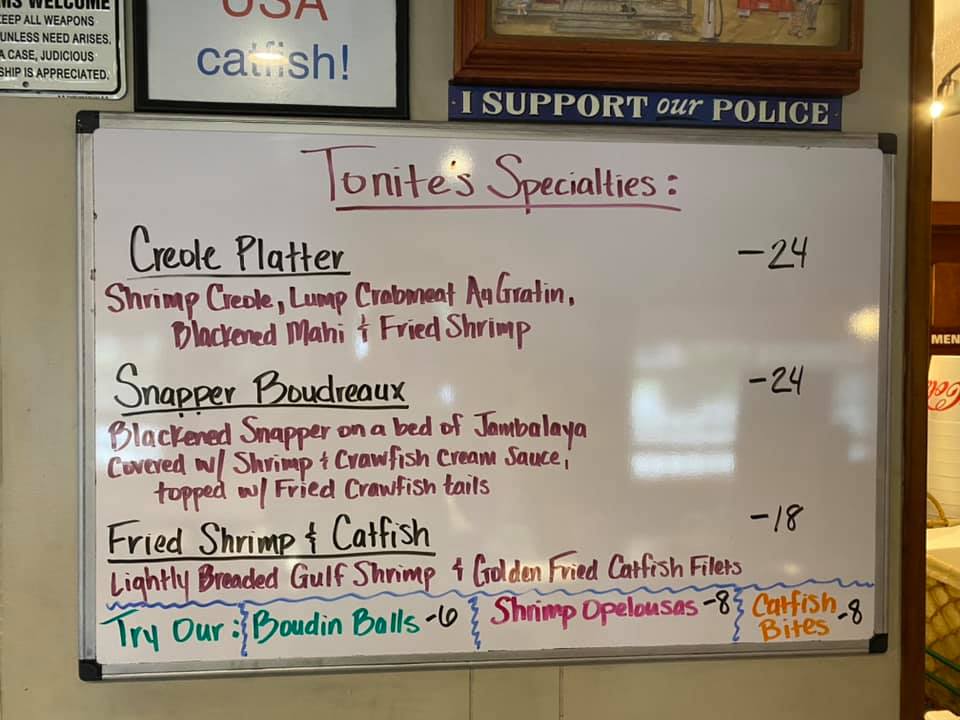 MS WELCOME
KEEP ALL WEAPONS
UNLESS NEED ARISES.
A CASE, JUDICIOUS
SHIP IS APPRECIATED.
USA
catfish!
I SUPPORT our POLICE
Tonite's Specialties:
Creole Platter -24
Shrimp Creole, Lump Crabmeat Au Gratin,
Blackened Mahi & Fried Shrimp
Snapper Boudreaux -24
Blackened Snapper on a bed of Jambalaya
Covered w/ Shrimp & Crawfish Cream Sauce,
topped w/ Fried Crawfish tails
Fried Shrimp & Catfish -18
Lightly Breaded Gulf Shrimp & Golden Fried Catfish Filets
Try Our: Boudin Balls -6 Shrimp Opelousas -8 Catfish Bites -8
MEN